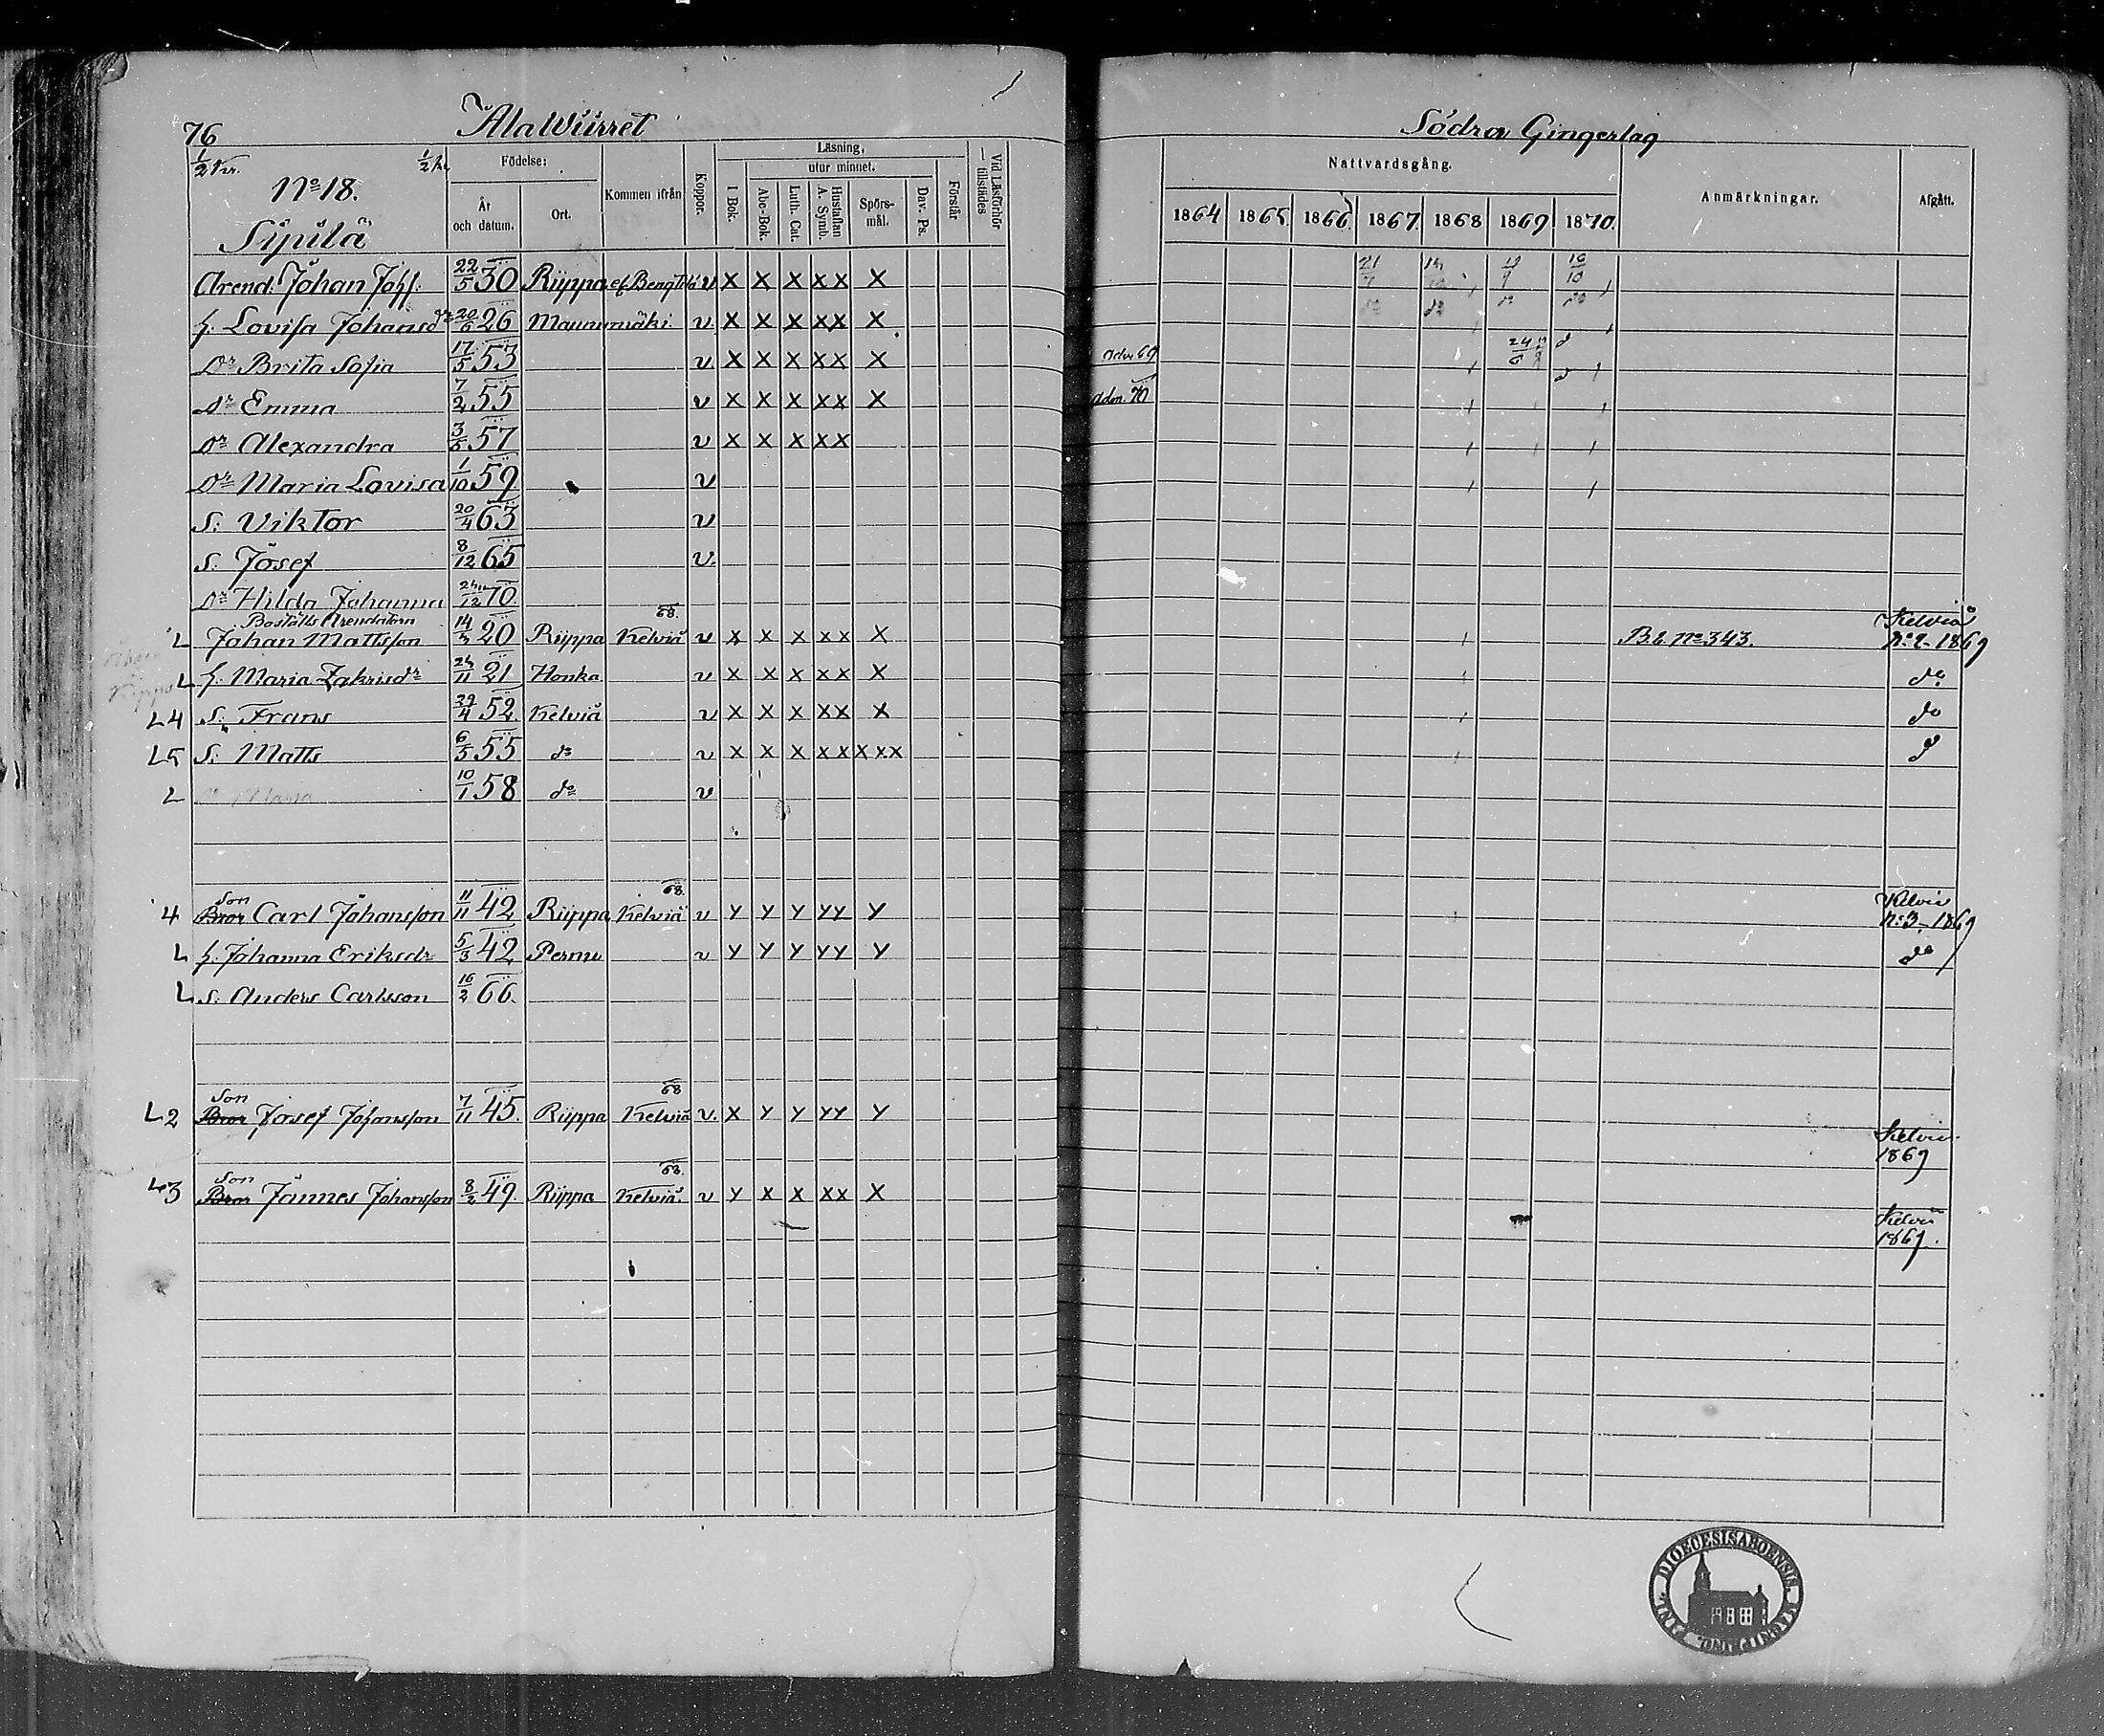 76 Ala Wiirret
½ Kr. ½ Kr.
No 18.
Sipilä
Födelse:
År och datum.
Ort.
Kommen ifrån
Koppor.
Läsning,
utur minnet.
I Bok.
Abc-Bok.
Luth. Cat.
Hustaflan A. Symb.
Spörs-mål.
Dav. Ps.
Förstår
Vid Läsförhör tillstädes
Arend. Johan Johss. 22/5 30 Riippa ef. Bengtilä v X X X X X X
h. Lovisa Johansdr 20/6 26 Maunumäki v. X X X X X X
Dr Brita Sofia 17/5 53 v. X X X X X X
Dr Emma 7/2 55 v X X X X X X
Dr Alexandra 3/5 57 v X X X X X
Dr Maria Lovisa 1/10 59 v
S: Viktor 20/4 63 v
S. Josef 8/12 65 v.
Dr Hilda Johanna 24/12 70
Boställs Arendatorn 68.
L Johan Mattsson 14/3 20 Riippa Kelviå v X X X X X X
L h. Maria Zakrisdr 24/11 21 Honka v X X X X X X
L4 S. Frans 29/4 52 Kelviå v X X X X X X
L5 S: Matts 6/5 55 do v X X X X X X X X
L Dr Maria 10/1 58 do v
Son 68.
4 Bror Carl Johansson 11/11 42 Riippa Kelviå v y y y y y y
L h. Johanna Eriksdr 5/3 42 Permu v y y y y y y
L S. Anders Carlsson 16/2 66
Son 68
L2 Bror Josef Johansson 7/11 45. Riippa Kelviå v. X y y y y y
Son 68.
L3 Bror Jannes Johansson 8/2 49 Riippa Kelviå. v y X X X X X
Södra Gingerlag
Nattvardsgång.
1864 1865 1866 1867. 1868 1869 1870.
Anmärkningar.
Afgått.
Adm 69
Adm. 70
B.b. No 343.
Kelviå
No 2 1869
do
do
d
Kelviå
No 3. 1869
do
Kelviå
1869
Kelviå
1869.
DIOECESIS ABOENSIS MAGNI